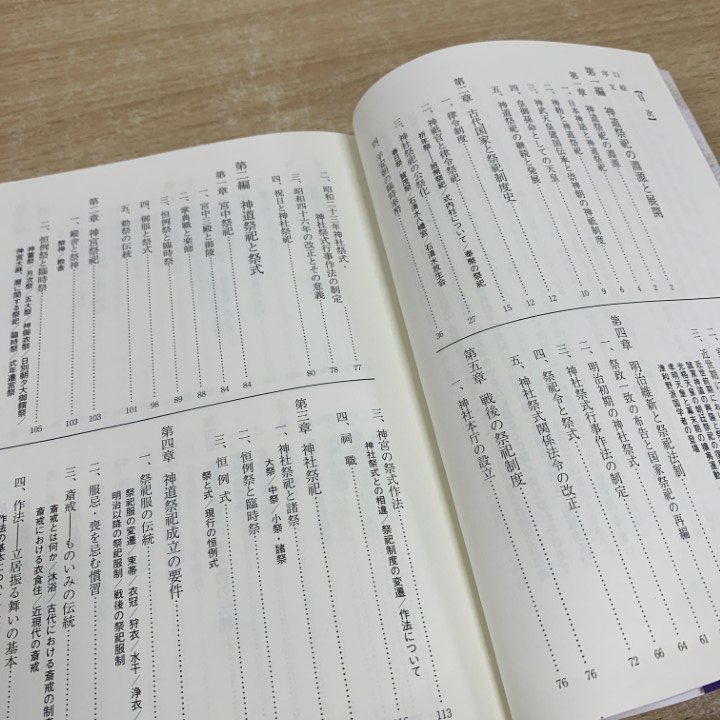 【目 次】
口絵
序文
第一編 神道祭祀の淵源と展開
第一章 神道祭祀の淵源 2
一、日本神話と神道祭祀 2
二、神勅と神道祭祀
三、神武天皇建国伝承と崇神朝の神祇制度 6
四、皇御孫命としての天皇 9
五、神道祭祀の継続と発展 10
第二章 古代国家と祭祀制度史 12
一、律令制度 12
二、神祇官と律令祭祀 15
祈年祭──班幣祭祀/式内社について/奉幣の祭祀
三、神社祭祀の公祭化 27
春日祭/賀茂祭/石清水八幡宮 石清水放生会
36
光格天皇と朝儀の再興
第四章 明治維新と祭祀法制 61
一、祭政一致の布告と国家祭祀の再編
二、明治初期の神社祭式 64
三、神社祭式行事作法の制定 66
四、祭祀令と祭式 72
五、神社祭式関係法令の改正
第五章 戦後の祭祀制度 76
一、神社本庁の設立 76
二、昭和二十三年神社祭式・
神社祭式行事作法の制定 77
三、昭和四十六年の改正とその意義 78
四、祝日と神社祭祀 80
第二編 神道祭祀と祭式
第一章 宮中祭祀 84
一、宮中三殿と御陵 84
二、掌典職と楽師 88
三、恒例祭と臨時祭 89
四、御服と祭式 98
五、勅祭の伝統 101
第二章 神宮祭祀 103
一、殿舎と祭神 103
祭神/殿舎
二、恒例祭と臨時祭 105
神嘗祭/月次祭/五大祭/神御衣祭/日別朝夕大御饌祭/
神宮大麻、暦に関する祭祀/臨時祭/式年遷宮祭
三、神宮の祭式作法 113
神社祭式との相違 祭祀制度の変遷/作法について
四、祠職
第三章 神社祭祀
一、神社祭祀と諸祭
大祭/中祭/小祭・諸祭
二、恒例祭と臨時祭
三、恒例式
祭と式/現行の恒例式
第四章 神道祭祀成立の要件
一、祭祀服の伝統
祭祀服の変遷/束帯/衣冠/狩衣/水干/浄衣/
明治以降の祭祀服制 戦後の祭祀服制
二、服忌・喪を忌む慣習
三、斎戒──ものいみの伝統
斎戒とは何か/沐浴/古代における斎戒の制
斎戒における衣食住、近現代の斎戒
四、作法──立居振る舞いの基本
作法の基本につい